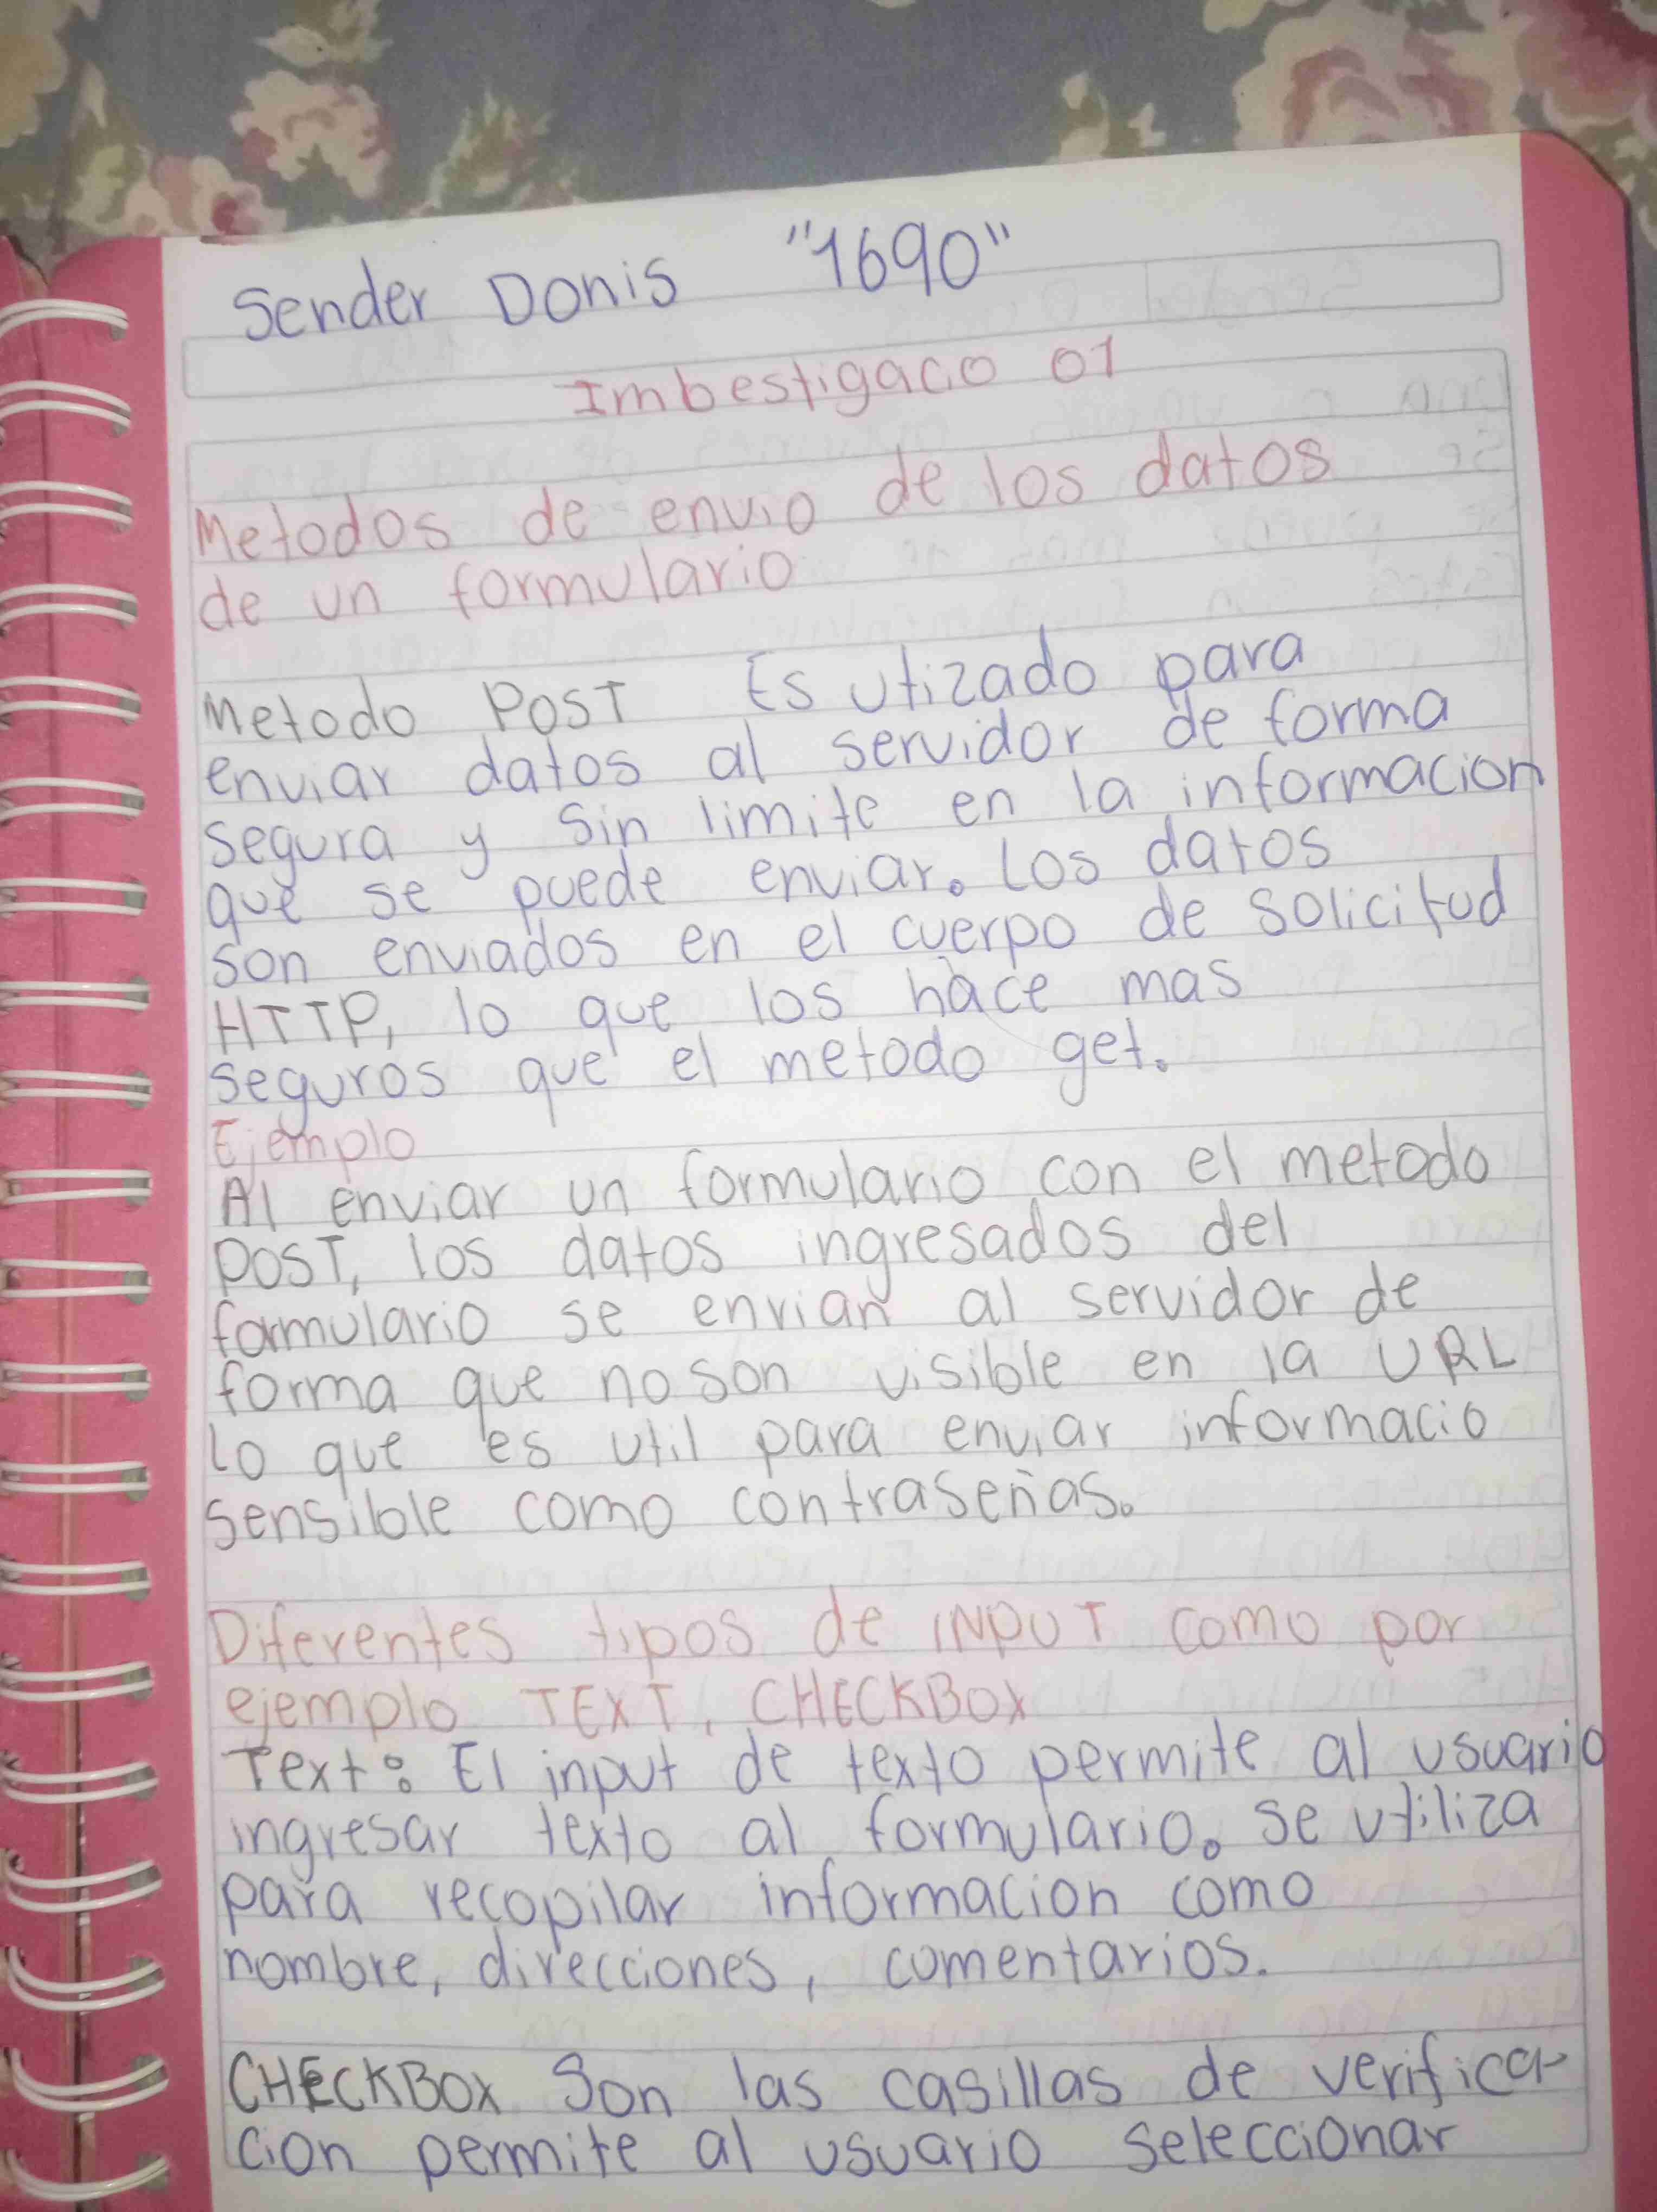 Sender Donis "1690"
Imbestigacio 01
Metodos de envio de los datos
de un formulario
Metodo POST Es utizado para
enviar datos al servidor de forma
segura y sin limite en la informacion
que se puede enviar. Los datos
son enviados en el cuerpo de solicitud
HTTP, lo que los hace mas
seguros que el metodo get.
Ejemplo
Al enviar un formulario con el metodo
POST, los datos ingresados del
formulario se envian al servidor de
forma que no son visible en la URL
Lo que es util para enviar informacio
sensible como contraseñas.
Diferentes tipos de INPUT como por
ejemplo TEXT, CHECKBOX
Text: El input de texto permite al usuario
ingresar texto al formulario. Se utiliza
para recopilar informacion como
nombre, direcciones, comentarios.
CHECKBOX Son las casillas de verifica-
cion permite al usuario seleccionar